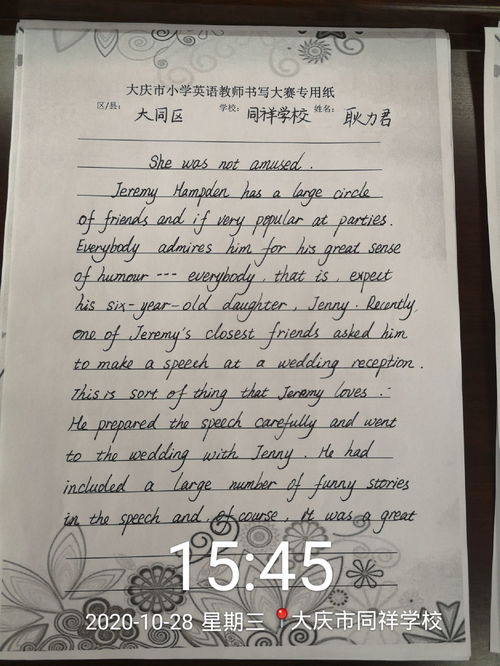 大庆市小学英语教师书写大赛专用纸
区/县： 大同区 学校： 同祥学校 姓名： 耿力君
She was not amused .
Jeremy Hampden has a large circle
of friends and if very popular at parties.
Everybody admires him for his great sense
of humour --- everybody , that is , expect
his six-year-old daughter , Jenny . Recently,
one of Jeremy's closest friends asked him
to make a speech at a wedding reception .
This is sort of thing that Jeremy loves .
He prepared the speech carefully and went
to the wedding with Jenny . He had
included a large number of funny stories
in the speech and , of course , it was a great
15:45
2020-10-28 星期三 大庆市同祥学校